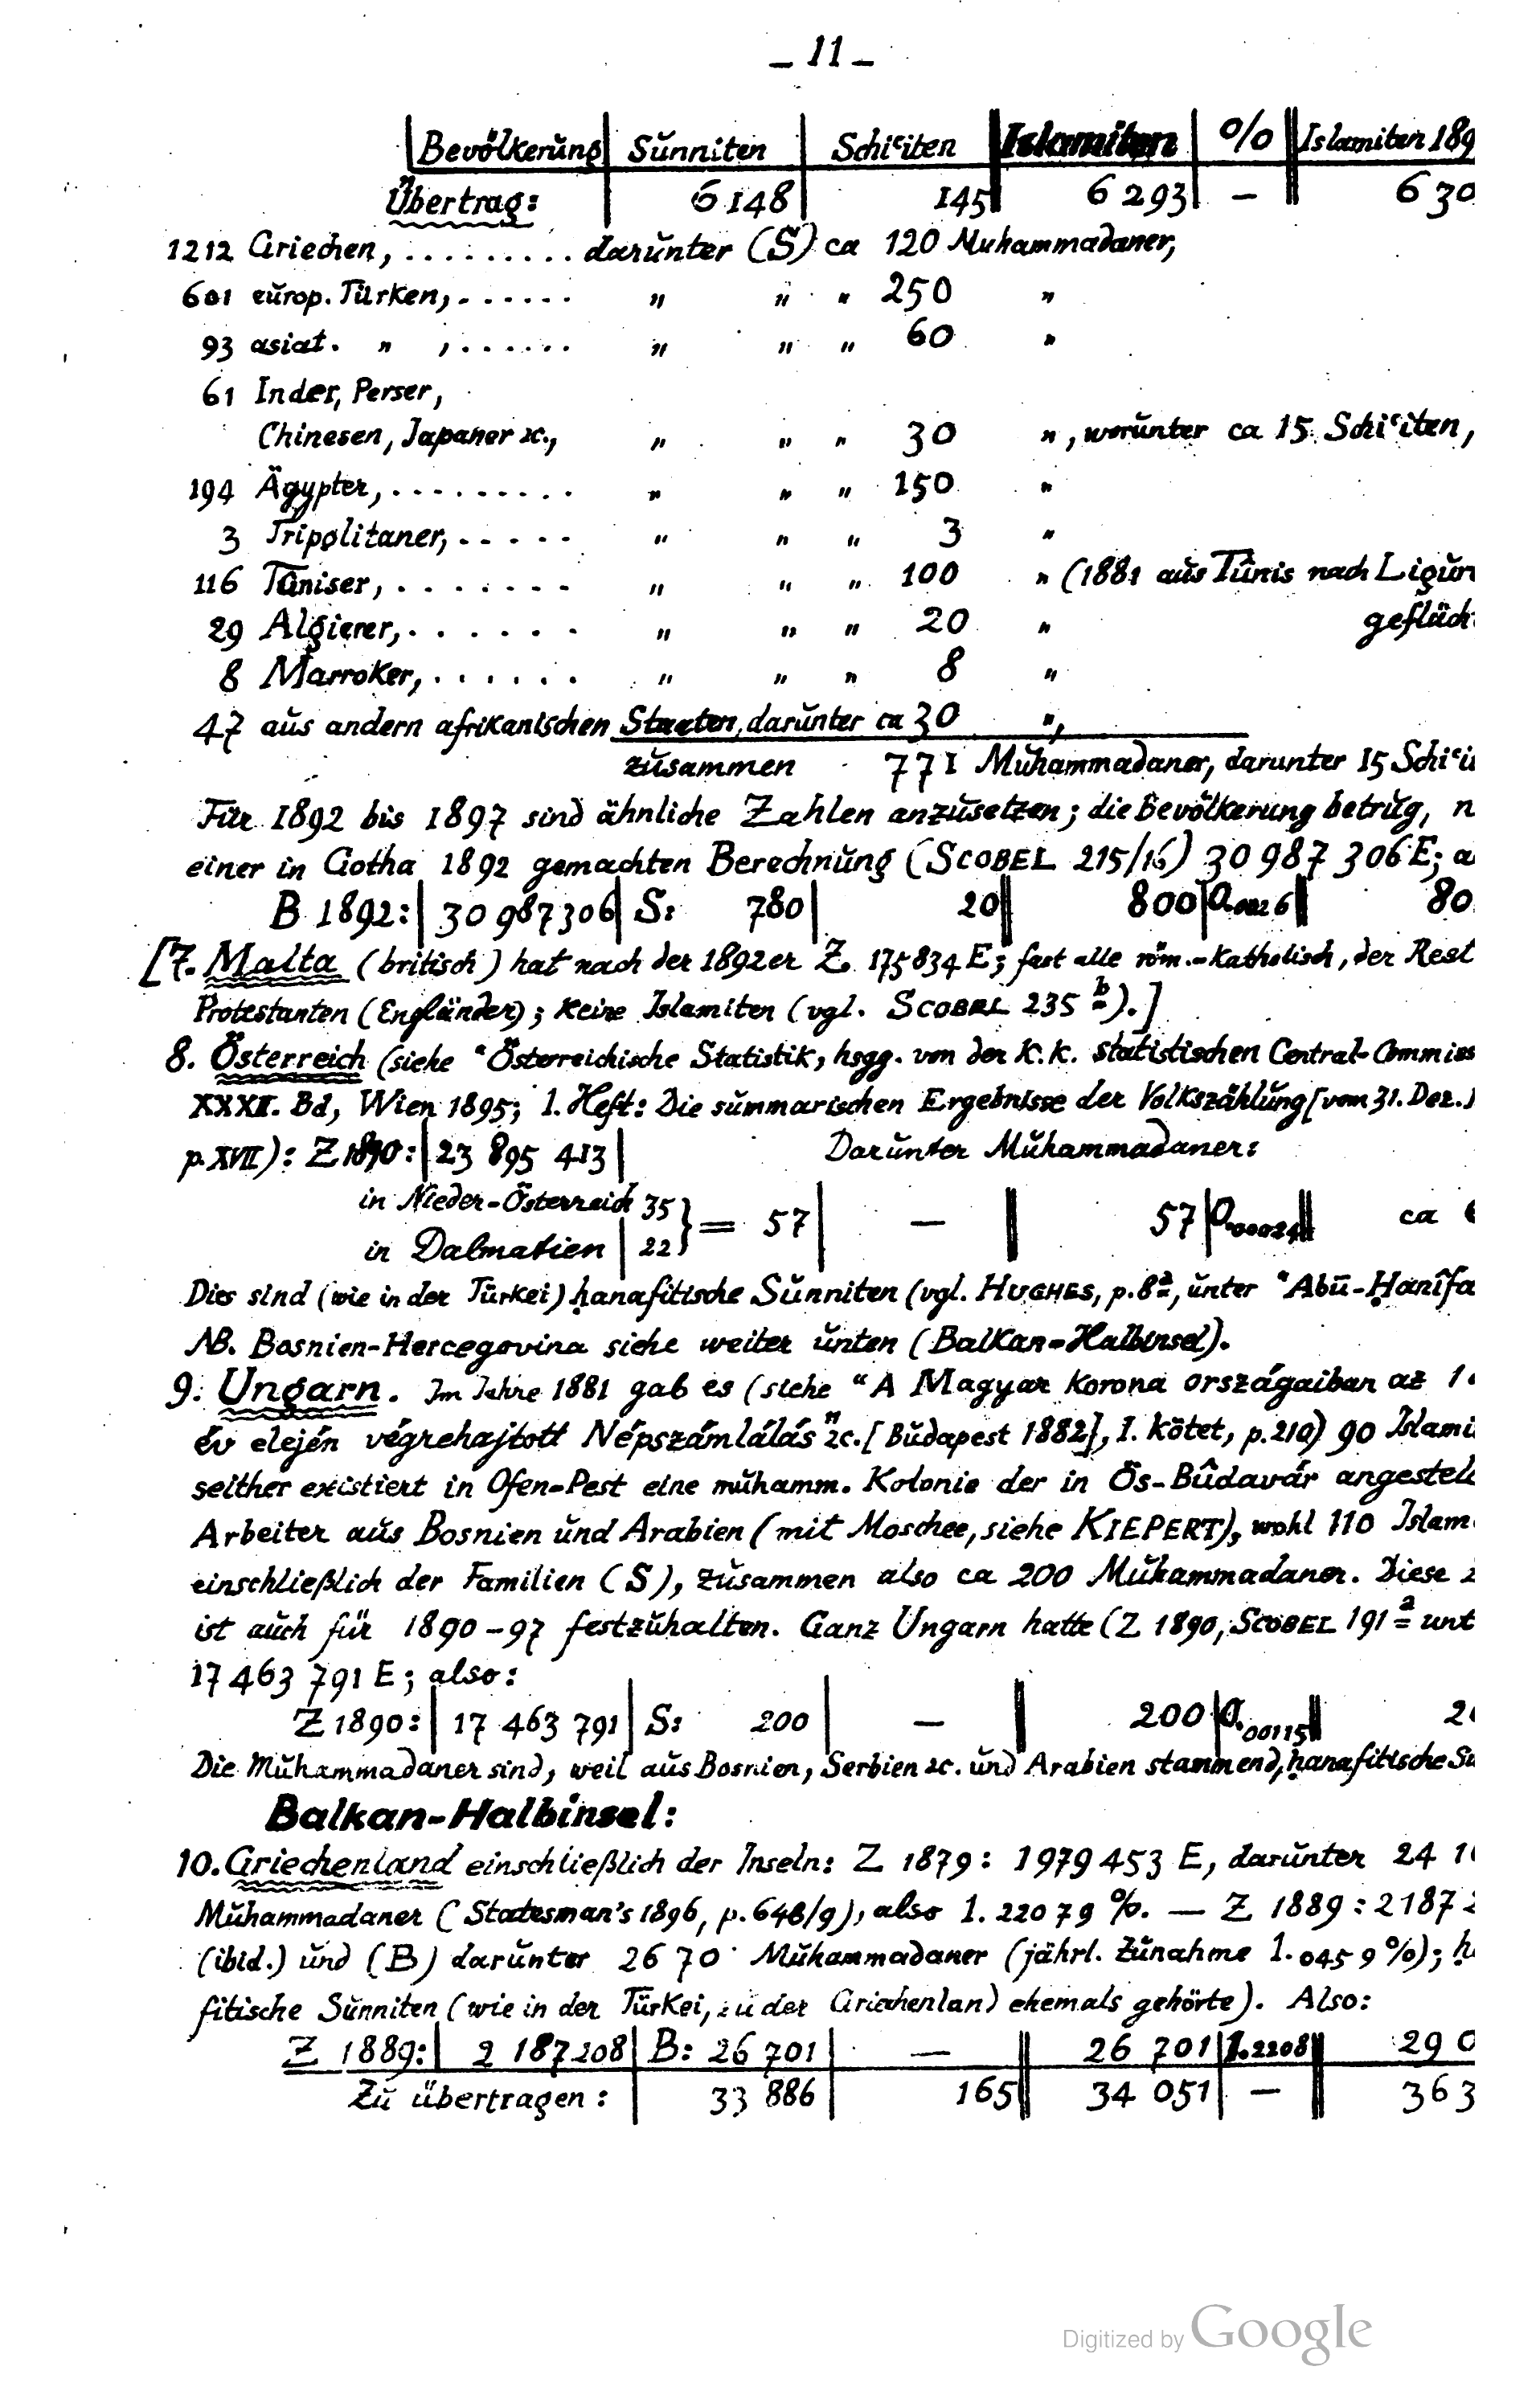 – 11 –
Bevölkerung Sunniten Schiʿiten Islamiten o/o Islamiten 189
Übertrag: 6 148 145 6 293 – 6 30
1212 Griechen, ......... darunter (S) ca 120 Muhammadaner,
601 europ. Türken, ...... " " " 250 "
93 asiat. " , ...... " " " 60 "
61 Inder, Perser,
Chinesen, Japaner ꝛc., " " " 30 ", worunter ca 15 Schiʿiten,
194 Ägypter, ......... " " " 150 "
3 Tripolitaner, ..... " " " 3 "
116 Tuniser, ....... " " " 100 " (1881 aus Tûnis nach Ligur
29 Algierer, ...... " " " 20 " geflüch
8 Marroker, ...... " " " 8 "
47 aus andern afrikanischen Staaten, darunter ca 30 ",
zusammen 771 Muhammadaner, darunter 15 Schiʿi
Für 1892 bis 1897 sind ähnliche Zahlen anzusetzen; die Bevölkerung betrug, n
einer in Gotha 1892 gemachten Berechnung (SCOBEL 215/16) 30 987 306 E; a
B 1892: 30 987 306 S: 780 20 800 0.0026 80
[7. Malta (britisch) hat nach der 1892er Z. 175 834 E; fast alle röm.-katholisch, der Rest
Protestanten (Engländer); keine Islamiten (vgl. SCOBEL 235 b).]
8. Österreich (siehe "Österreichische Statistik, hsgg. von der K.K. statistischen Central-Commiss
XXXII. Bd, Wien 1895; 1. Heft: Die summarischen Ergebnisse der Volkszählung [vom 31. Dez.]
p. XVII): Z 1890: 23 895 413 Darunter Muhammadaner:
in Nieder-Österreich 35
} = 57 — 57 0.00024 ca
in Dalmatien 22
Dies sind (wie in der Türkei) ḥanafitische Sunniten (vgl. HUGHES, p. 8a, unter "Abū-Ḥanîfa
NB. Bosnien-Hercegovina siehe weiter unten (Balkan-Halbinsel).
9. Ungarn. Im Jahre 1881 gab es (siehe "A Magyar korona országaiban az 1
év elején végrehajtott Népszámlálás" ꝛc. [Budapest 1882], I. kötet, p. 210) 90 Islami
seither existiert in Ofen-Pest eine muhamm. Kolonie der in Ös-Bûdavár angestel
Arbeiter aus Bosnien und Arabien (mit Moschee, siehe KIEPERT), wohl 110 Islam
einschließlich der Familien (S), zusammen also ca 200 Muhammadaner. Diese
ist auch für 1890–97 festzuhalten. Ganz Ungarn hatte (Z 1890, SCOBEL 191 a unt
17 463 791 E; also:
Z 1890: 17 463 791 S: 200 — 200 0.00115 2
Die Muhammadaner sind, weil aus Bosnien, Serbien ꝛc. und Arabien stammend, ḥanafitische Su
Balkan-Halbinsel:
10. Griechenland einschließlich der Inseln: Z 1879: 1 979 453 E, darunter 24 1
Muhammadaner (Statesman's 1896, p. 648/9), also 1.22079 %. — Z 1889: 2187
(ibid.) und (B) darunter 26 70 Muhammadaner (jährl. Zunahme 1.0459 %); ḥ
fitische Sunniten (wie in der Türkei, zu der Griechenland ehemals gehörte). Also:
Z 1889: 2 187 208 B: 26 701 — 26 701 1.2208 29 0
Zu übertragen: 33 886 165 34 051 — 36 3
Digitized by Google